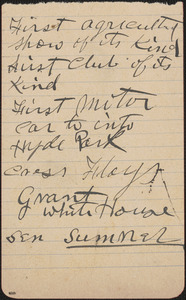 First agricultl
show of its Kind
First Club of its
Kind
First Motor
car to into
Hyde Park
Cross
Grant
White House
Sen Sumner